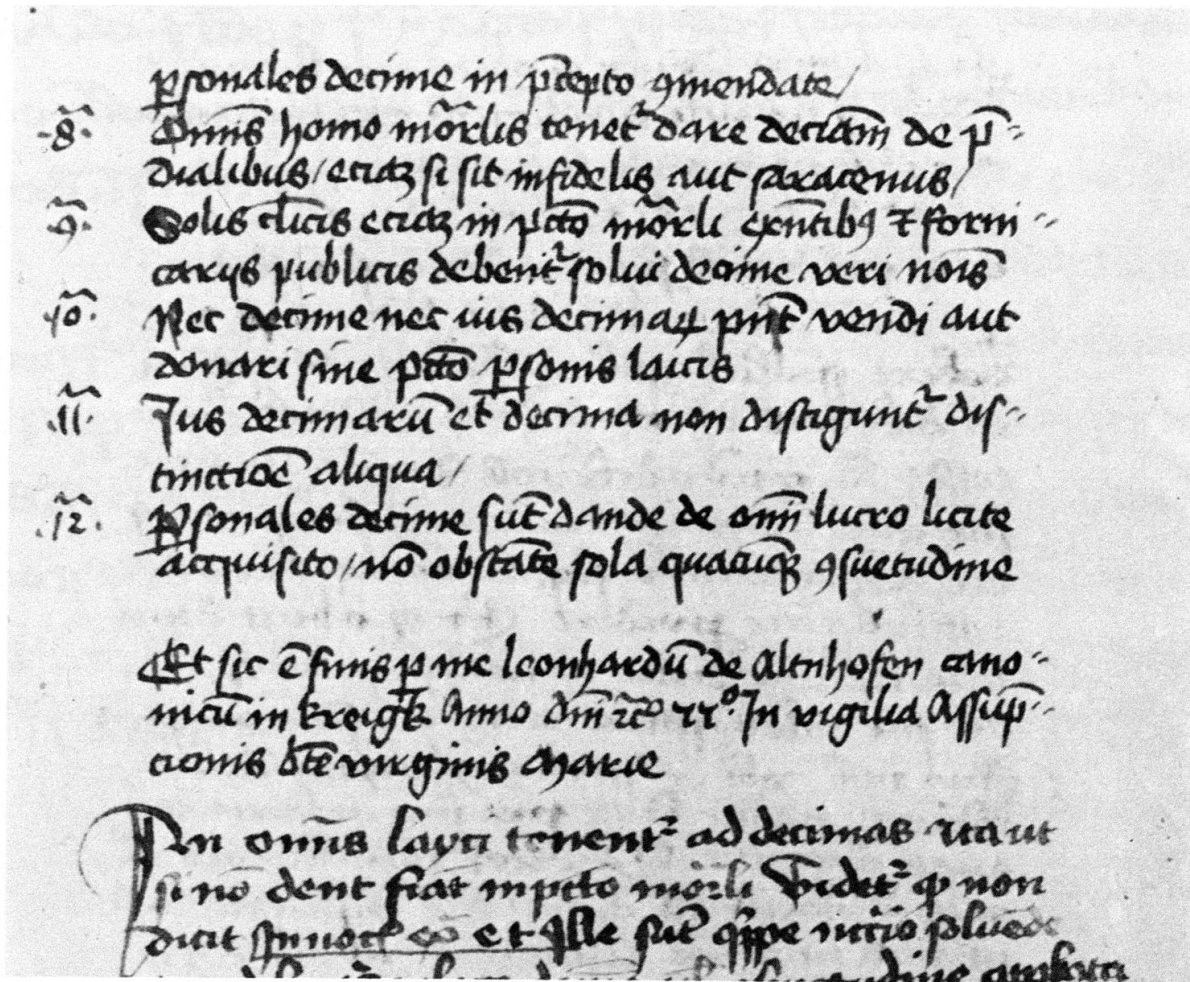 p̱sonales decime in p̄cepto ꝯmendate /
·8̃· Om̄is homo mõrlis tenet᷑ dare decīam̄ de p̄ =
dialibus / eciaꝫ si sit infidelis aut saracenus /
·9̃· Solis cl̄icis eciaꝫ in pctō mõrli exn̄tibꝰ ⁊ forni =
carijs publicis debent᷑ solui decime veri nōis
·10̃· Nec decime nec ius decimaꝝ pn̄t vendi aut
donari sine pctō ꝑsonis laicis
·11̃· Jus decimarū et decima non distīgunt᷑ dis =
tinctiōe aliqua /
·12̃· Ꝑsonales decime sūt dande de om̄i lucro licite
acquisito / nō obstāte sola quacūqꝫ ꝯsuetudine
Et sic ē finis ꝑ me leonhardū de Altnhofen cano =
nicū in kreigk Anno dn̄i ⁊c̄ᵒ 77ᵒ. In vigilia Assūp̄ =
cionis bt̄e virginis Marie
An om̄s layci tenent᷑ ad decimas ita ut
si nō dent fiāt in pctō mōrli Videt᷑ ꝙ non
dicit et ille sūt solvēde